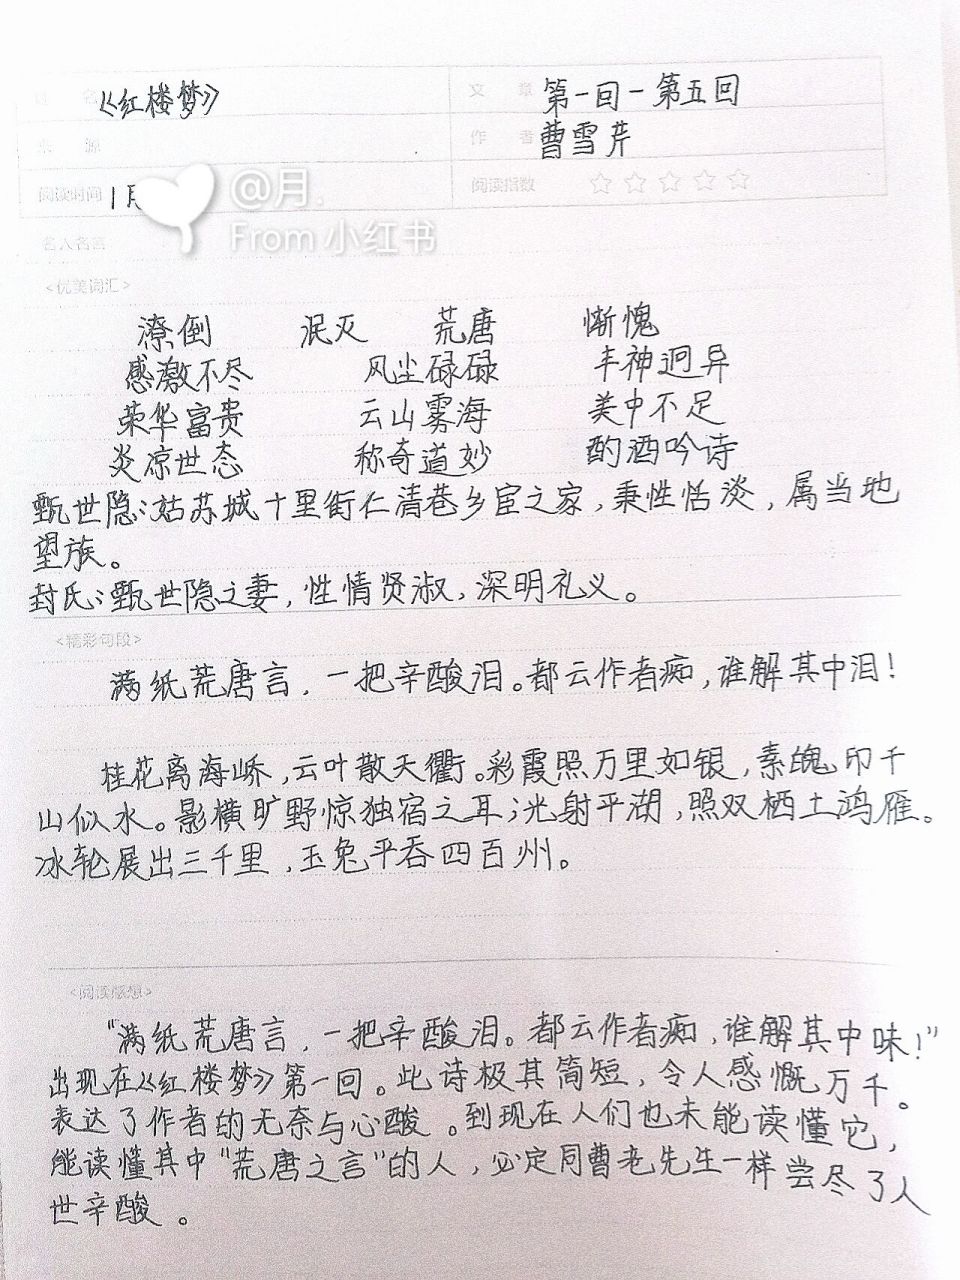 姓 名 《红楼梦》 文 章 第一回-第五回
来 源 作 者 曹雪芹
阅读时间 1月 阅读指数 ☆☆☆☆☆
@月.
From 小红书
名人名言
<优美词汇>
潦倒 泯灭 荒唐 惭愧
感激不尽 风尘碌碌 丰神迥异
荣华富贵 云山雾海 美中不足
炎凉世态 称奇道妙 酌酒吟诗
甄世隐:姑苏城十里街仁清巷乡宦之家,秉性恬淡,属当地
望族。
封氏:甄世隐之妻,性情贤淑,深明礼义。
<精彩句段>
满纸荒唐言,一把辛酸泪。都云作者痴,谁解其中泪!
桂花离海峤,云叶散天衢。彩霞照万里如银,素魄印千
山似水。影横旷野惊独宿之耳;光射平湖,照双栖土鸿雁。
冰轮展出三千里,玉兔平吞四百州。
<阅读感想>
“满纸荒唐言,一把辛酸泪。都云作者痴,谁解其中味!”
出现在《红楼梦》第一回。此诗极其简短,令人感慨万千。
表达了作者的无奈与心酸。到现在人们也未能读懂它,
能读懂其中“荒唐之言”的人,必定同曹老先生一样尝尽了人
世辛酸。